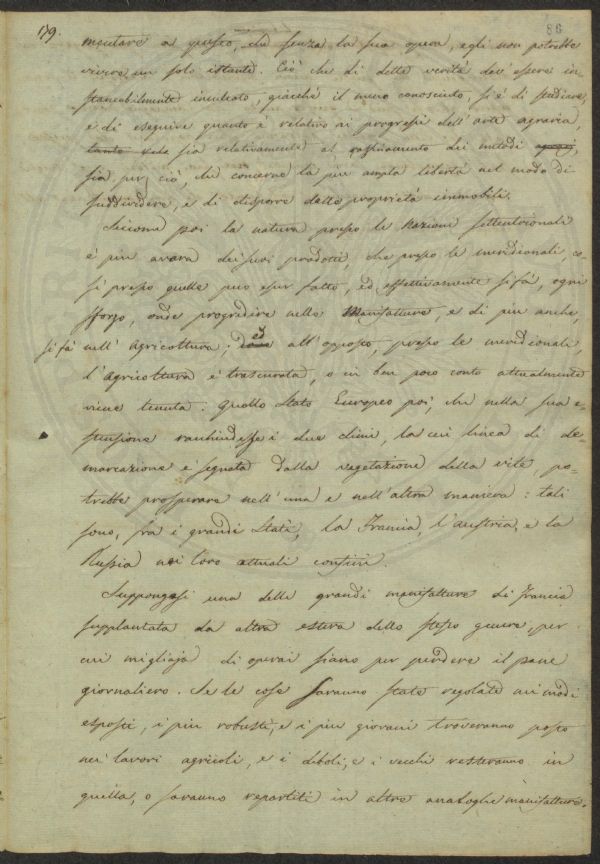 179.
86
mentare a questo, che senza la sua opera, egli non potrebbe
vivere un solo istante. Ciò che di dette verità dev'essere in-
stancabilmente inculcato, giacchè il muro conosciuto, si è di studiare,
e di eseguire quanto è relativo ai progressi dell'arte agraria,
tanto sia relativamente al raffinamento dei metodi
sia per ciò, che concerne la più ampla libertà nel modo di
suddividere, e di disporre delle proprietà immobili.
Siccome poi la natura presso le Nazioni settentrionali
è più avara dei suoi prodotti, che presso le meridionali, co-
sì presso quelle può esser fatto, ed effettivamente si fà, ogni
sforzo, onde progredire nelle Manifatture, e di più anche,
si fà nell'Agricoltura; ed all'opposto, presso le meridionali,
l'agricoltura è trascurata, o in ben poco conto attualmente
viene tenuta. Quello Stato Europeo poi, che nella sua e-
stensione racchiudesse i due climi, la cui linea di de-
marcazione è segnata dalla vegetazione della vite, po-
trebbe prosperare nell'una e nell'altra maniera: tali
sono, frà i grandi Stati, la Francia, l'Austria, e la
Russia nei loro attuali confini.
Suppongasi una delle grandi manifatture di Francia
supplantata da altra estera dello stesso genere, per
cui migliaja di operai siano per perdere il pane
giornaliero. Se le cose saranno state regolate nei modi
esposti, i più robusti, e i più giovani troveranno posto
nei lavori agricoli, e i deboli, e i vecchi resteranno in
quella, o saranno repartiti in altre analoghe manifatture.